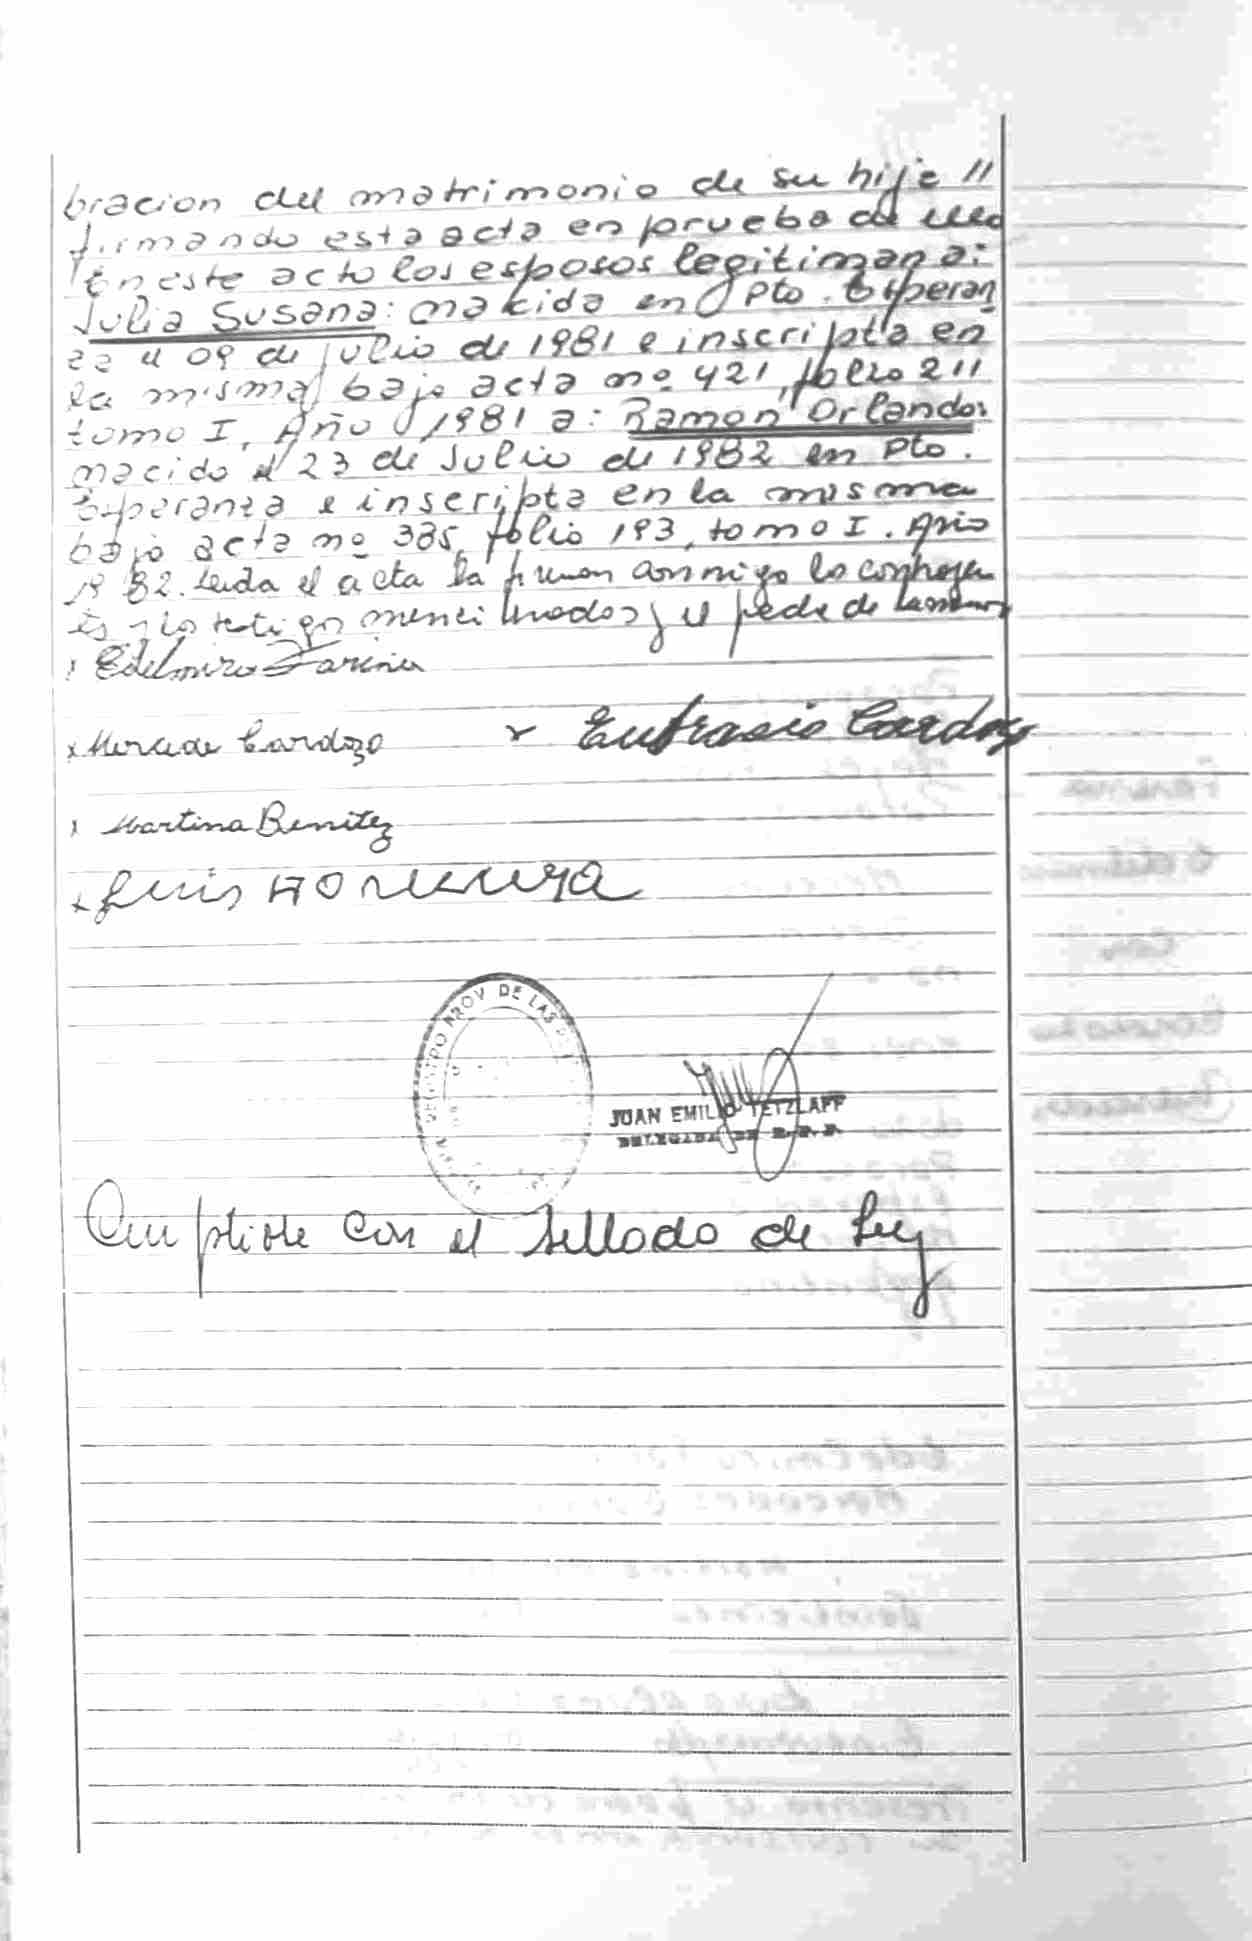 bracion del matrimonio de su hija //
firmando esta acta en prueba de ello
En este acto los esposos legitiman a:
Julia Susana: nacida en Pto. Esperan
za el 09 de julio de 1981 e inscripta en
la misma bajo acta nº 421, folio 211
tomo I, Año 1981 a: Ramon Orlando:
nacido el 23 de Julio de 1982 en Pto.
Esperanza e inscripta en la misma
bajo acta nº 385, folio 193, tomo I. Año
1982. Leida el acta la firman conmigo los contrayen
tes y los testigos mencionados y el padre de la menor
x Edelmiro Fariña
x Mercede Cardozo x Eufrasio Cardozo
x Martina Benitez
x Luis
PROV DE LAS
JUAN EMILIO TETZLAFF
DELEGADA DE R.P.P.
Cumplise con el Sellado de Ley